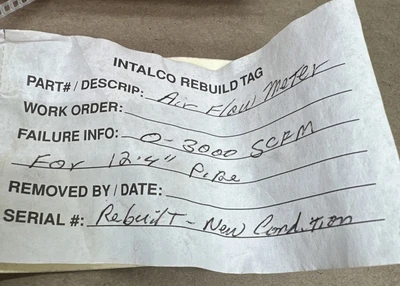 INTALCO REBUILD TAG
PART# / DESCRIP: Air Flow Meter
WORK ORDER:
FAILURE INFO: 0-3000 SCFM
For 12.4" Pipe
REMOVED BY / DATE:
SERIAL #: Rebuilt - New Condition